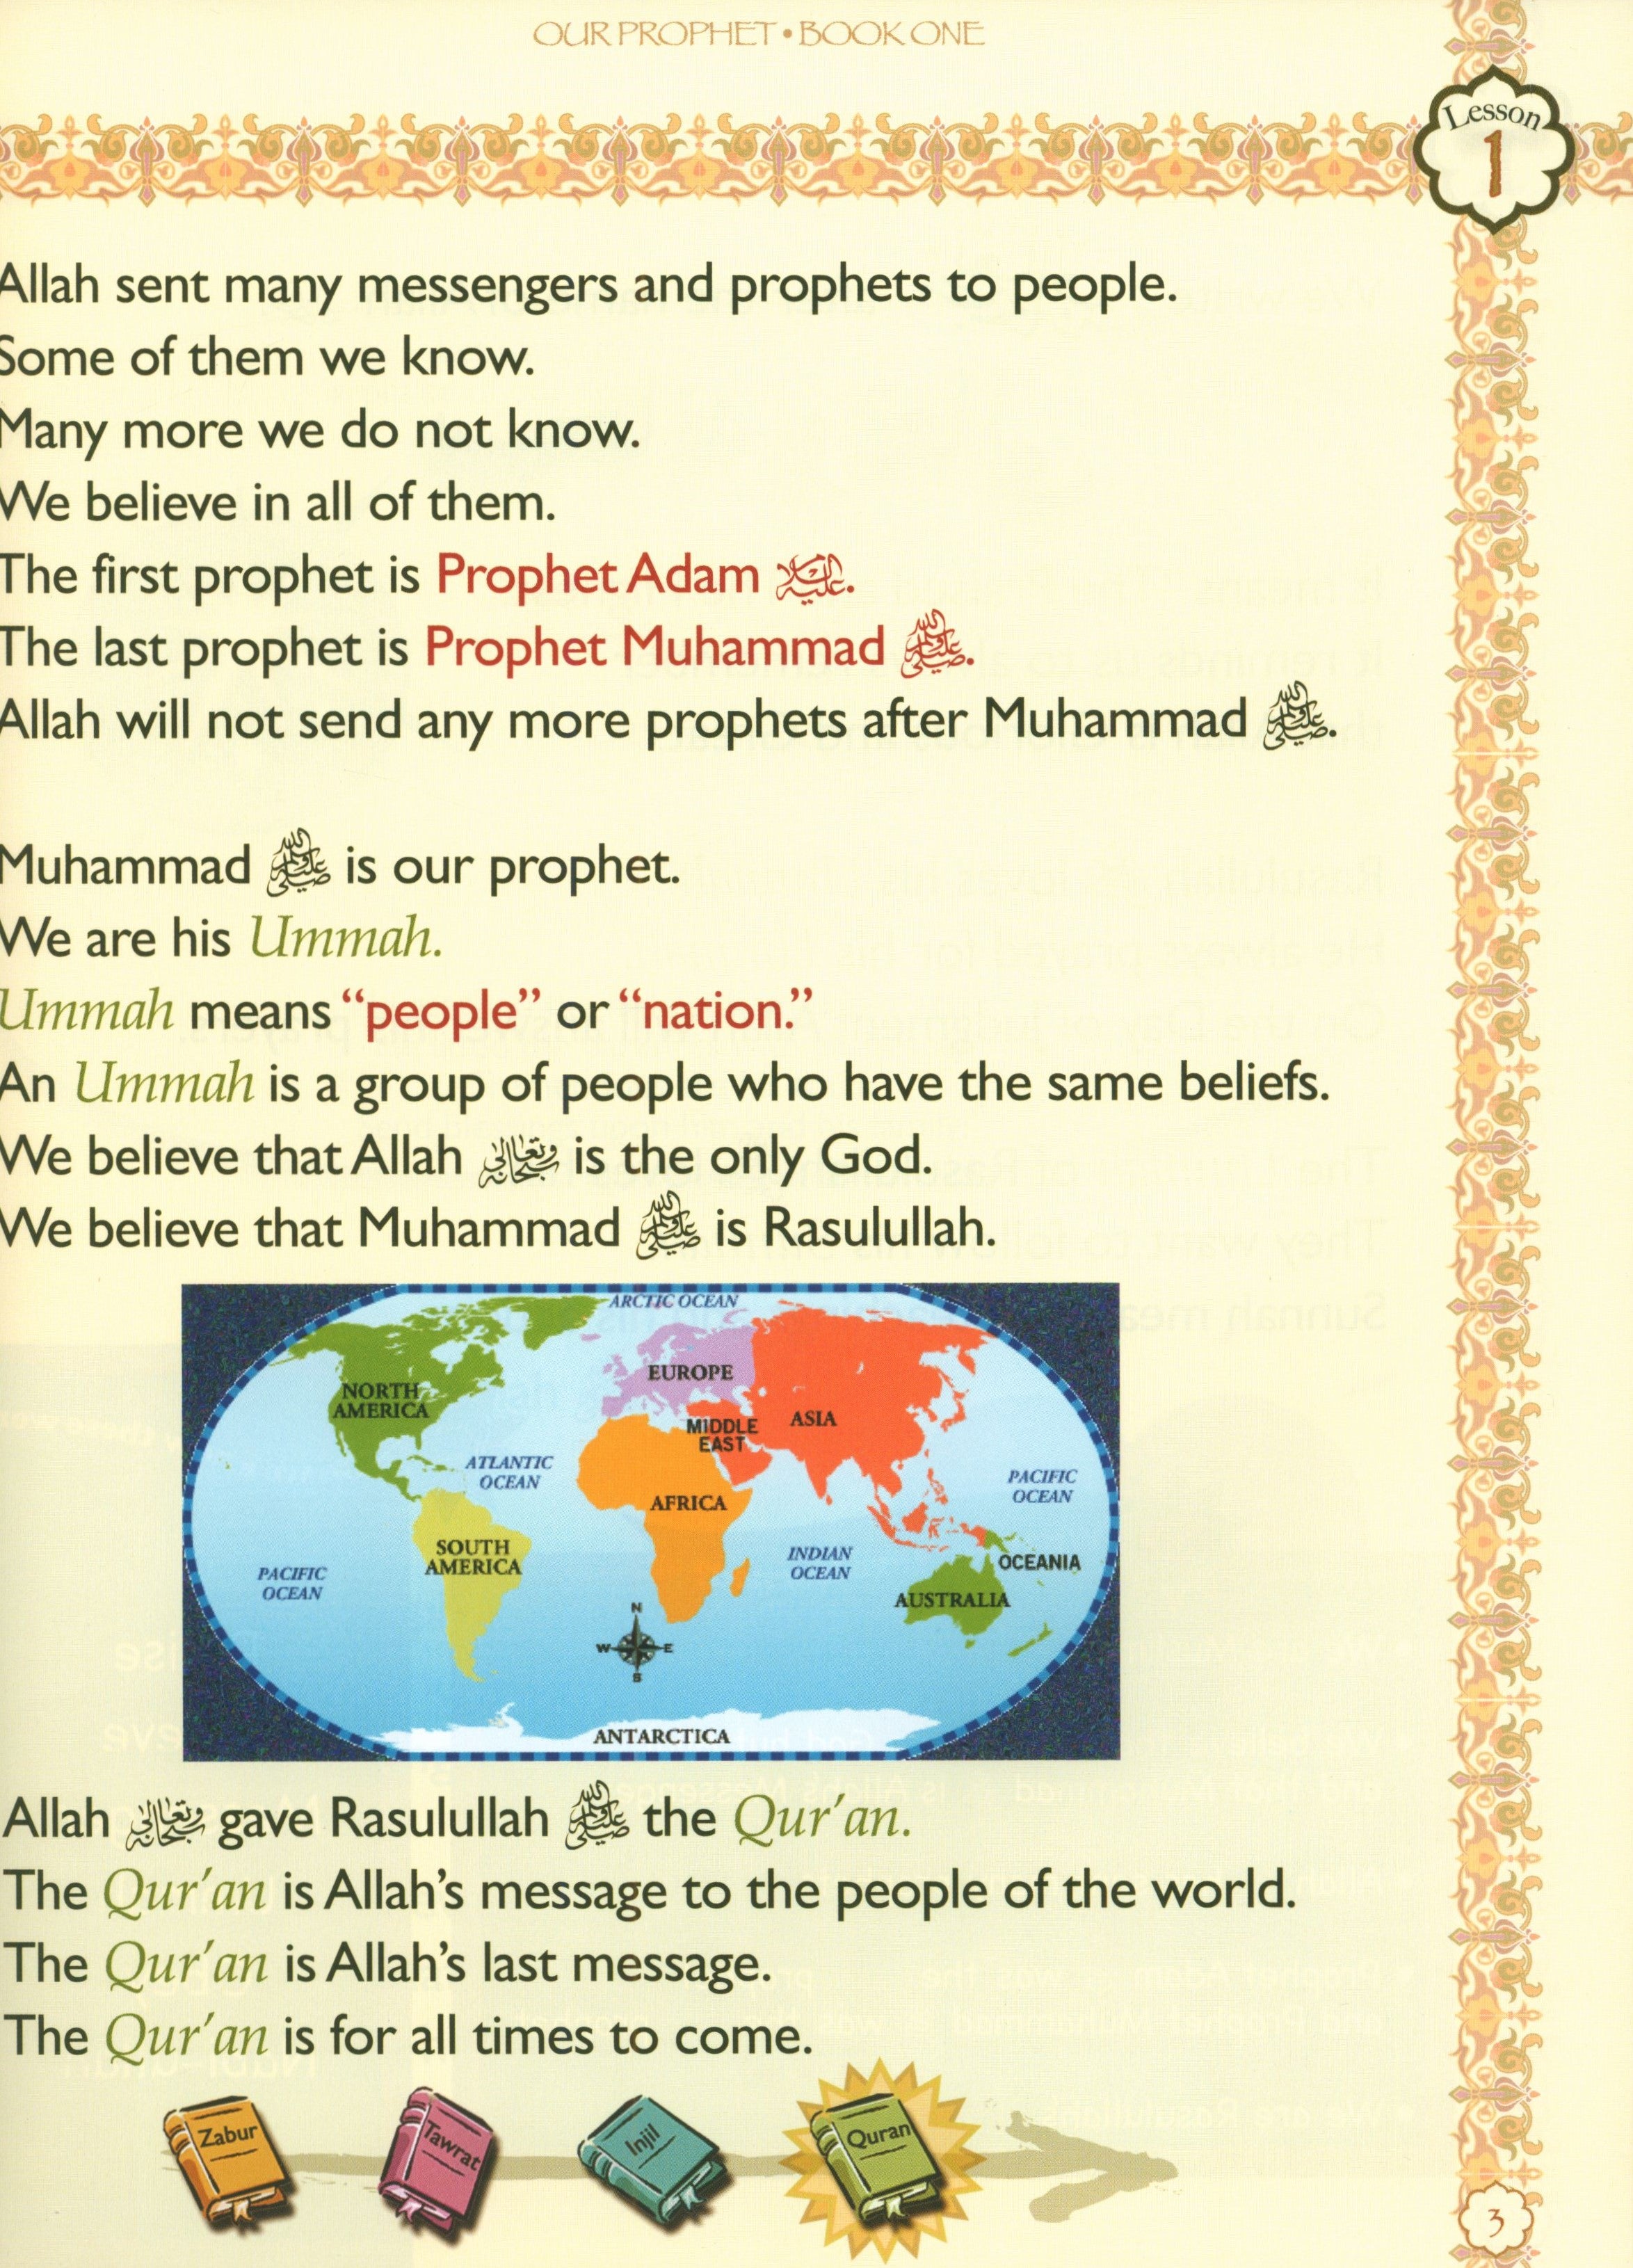 OUR PROPHET • BOOK ONE
Lesson
1
Allah sent many messengers and prophets to people.
Some of them we know.
Many more we do not know.
We believe in all of them.
The first prophet is Prophet Adam عليه السلام.
The last prophet is Prophet Muhammad ﷺ.
Allah will not send any more prophets after Muhammad ﷺ.
Muhammad ﷺ is our prophet.
We are his Ummah.
Ummah means “people” or “nation.”
An Ummah is a group of people who have the same beliefs.
We believe that Allah سبحانه وتعالى is the only God.
We believe that Muhammad ﷺ is Rasulullah.
ARCTIC OCEAN
EUROPE
NORTH
AMERICA
MIDDLE
EAST
ASIA
ATLANTIC
OCEAN
PACIFIC
OCEAN
AFRICA
SOUTH
AMERICA
INDIAN
OCEAN
OCEANIA
PACIFIC
OCEAN
AUSTRALIA
N
W E
S
ANTARCTICA
Allah سبحانه وتعالى gave Rasulullah ﷺ the Qur’an.
The Qur’an is Allah’s message to the people of the world.
The Qur’an is Allah’s last message.
The Qur’an is for all times to come.
Zabur
Tawrat
Injil
Quran
3